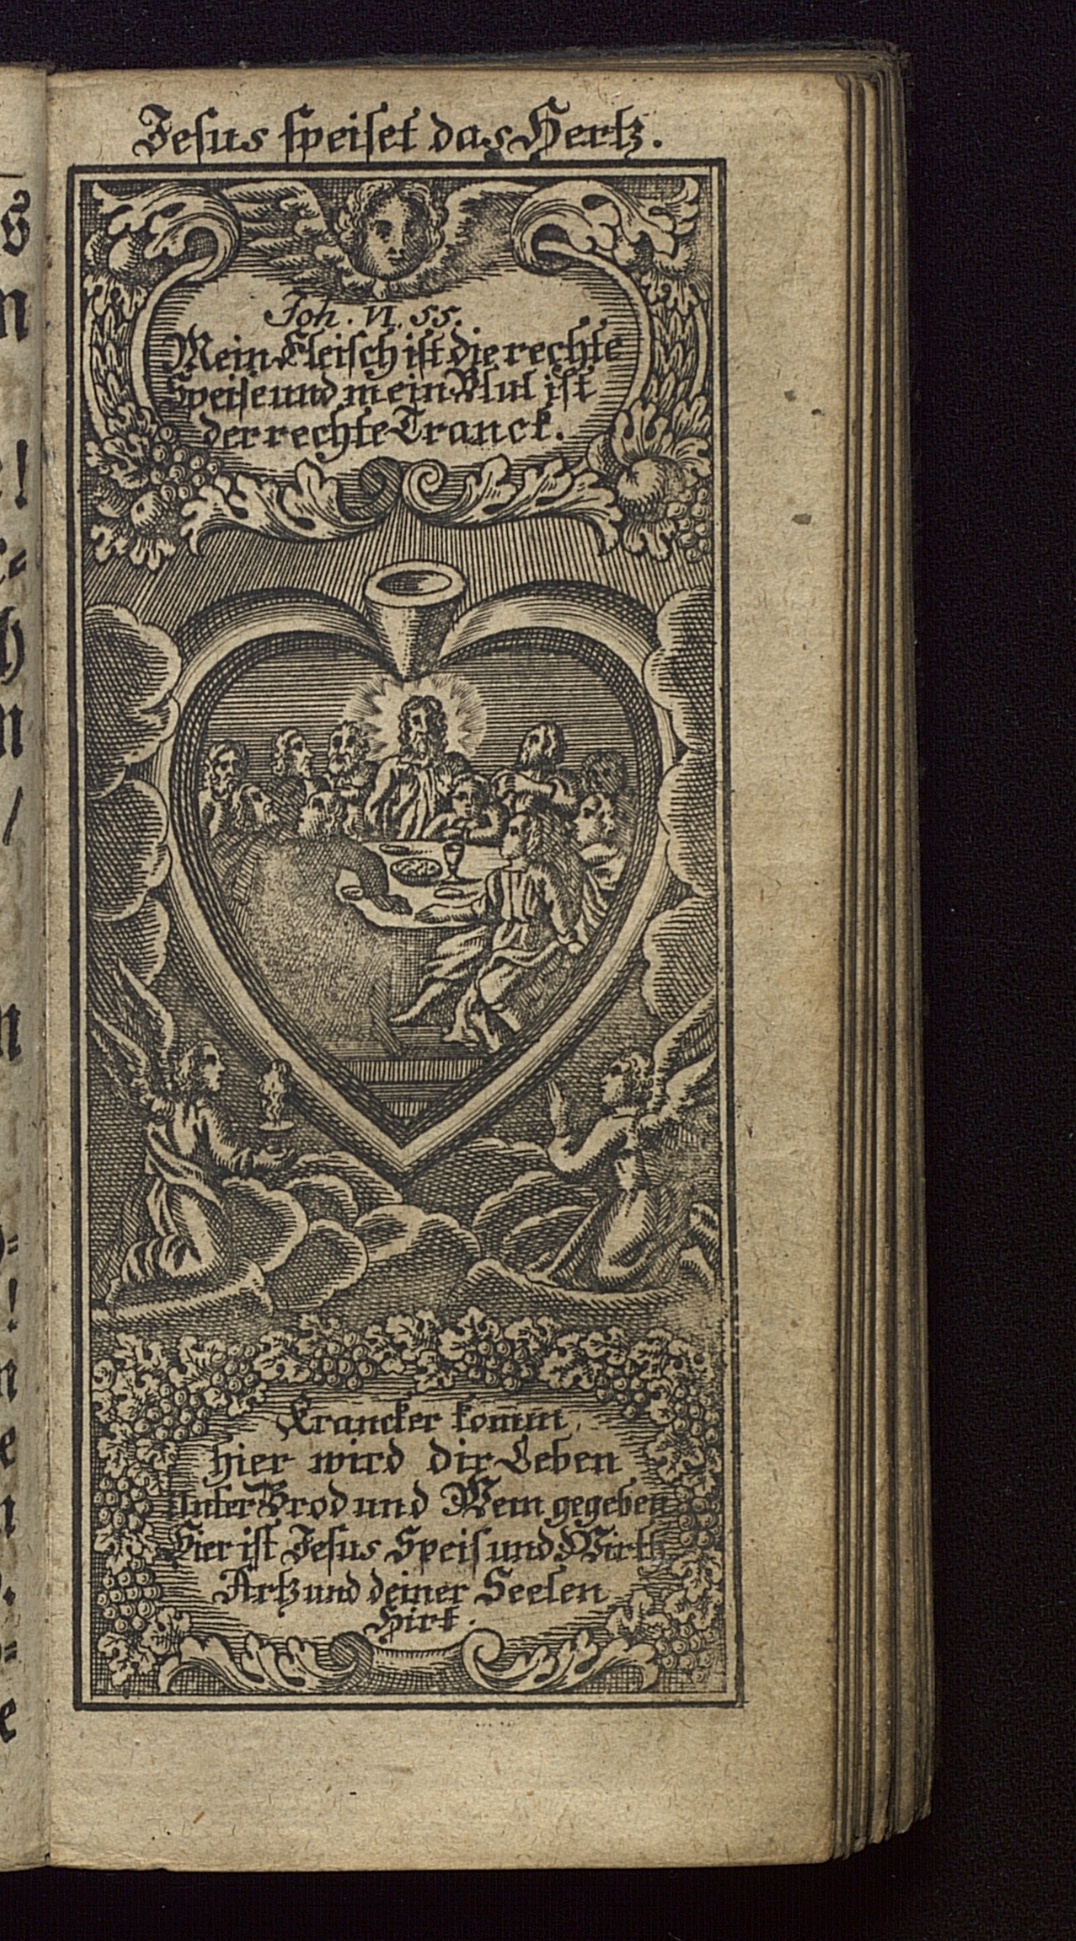 Jesus speiset das Hertz.
Joh. VI. 55.
Mein Fleisch ist die rechte
Speise und mein Blut ist
der rechte Tranck.
Krancker kom̄m
hier wird dir Leben
Unter Brod und Wein gegeben
Hier ist Jesus Speis und Wirth
Artz und deiner Seelen
Hirt.